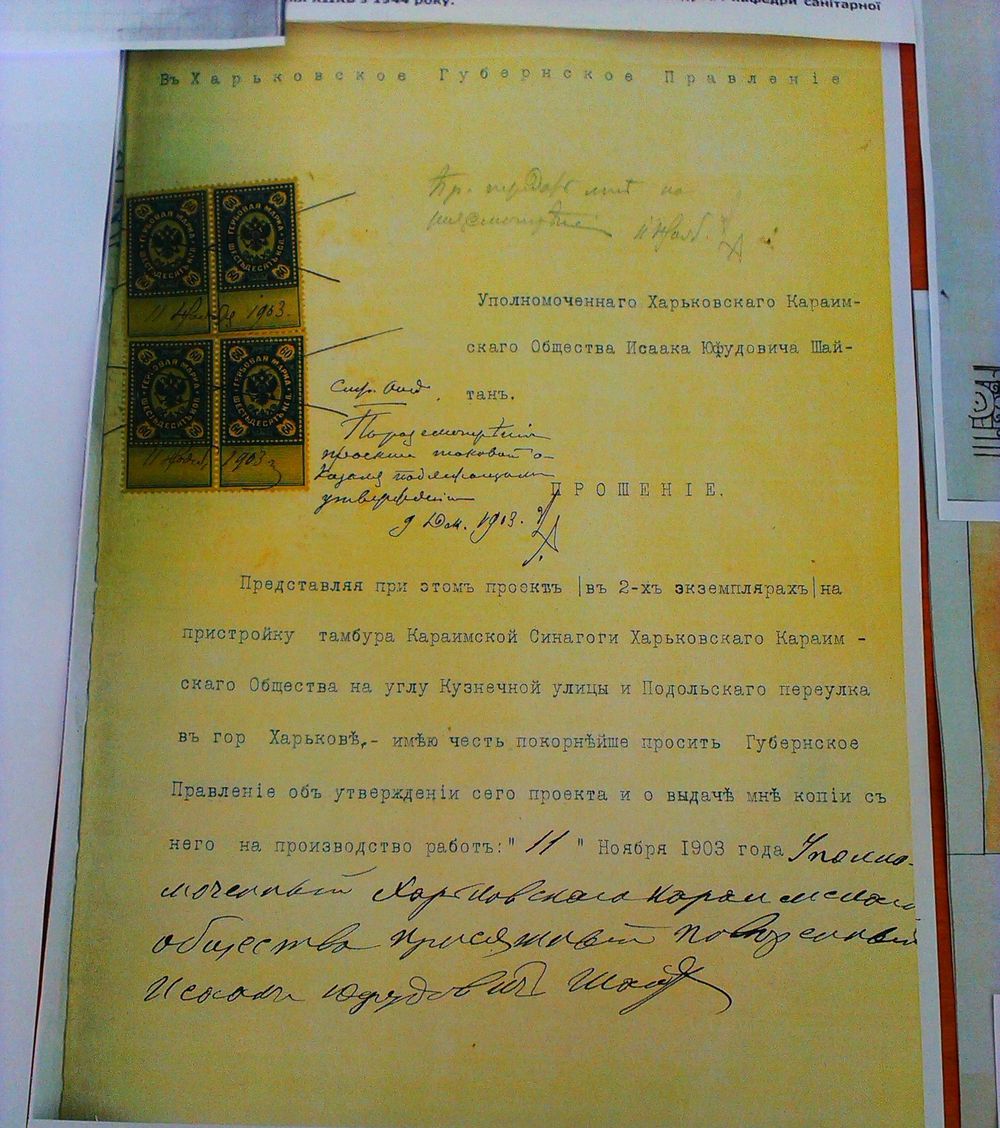 з 1944 року.
кафедри санітарної
Въ Харьковское Губернское Правленіе
11 Нояб.
ГЕРБОВАЯ МАРКА
ШЕСТЬДЕСЯТЪ КОП.
60
60
60
60
ГЕРБОВАЯ МАРКА
ШЕСТЬДЕСЯТЪ КОП.
60
60
60
60
11 Ноября 1903 г.
ГЕРБОВАЯ МАРКА
ШЕСТЬДЕСЯТЪ КОП.
60
60
60
60
ГЕРБОВАЯ МАРКА
ШЕСТЬДЕСЯТЪ КОП.
60
60
60
60
11 Нояб. 1903 г.
Уполномоченнаго Харьковскаго Караим-
скаго Общества Исаака Юфудовича Шай-
танъ.
По разсмотрѣніи
проектъ таковой о-
казался подлежащимъ
утвержденію
9 Дек. 1903.
ПРОШЕНІЕ.
Представляя при этомъ проектъ |въ 2-хъ экземплярахъ| на
пристройку тамбура Караимской Синагоги Харьковскаго Караим -
скаго Общества на углу Кузнечной улицы и Подольскаго переулка
въ гор Харьковѣ,- имѣю честь покорнѣйше просить Губернское
Правленіе объ утвержденіи сего проекта и о выдачѣ мнѣ копіи съ
него на производство работъ: " 11 " Ноября 1903 года Уполно-
моченный Харьковскаго караимскаго
общества присяжный повѣренный
Исаакъ Юфудовичъ Шайтанъ